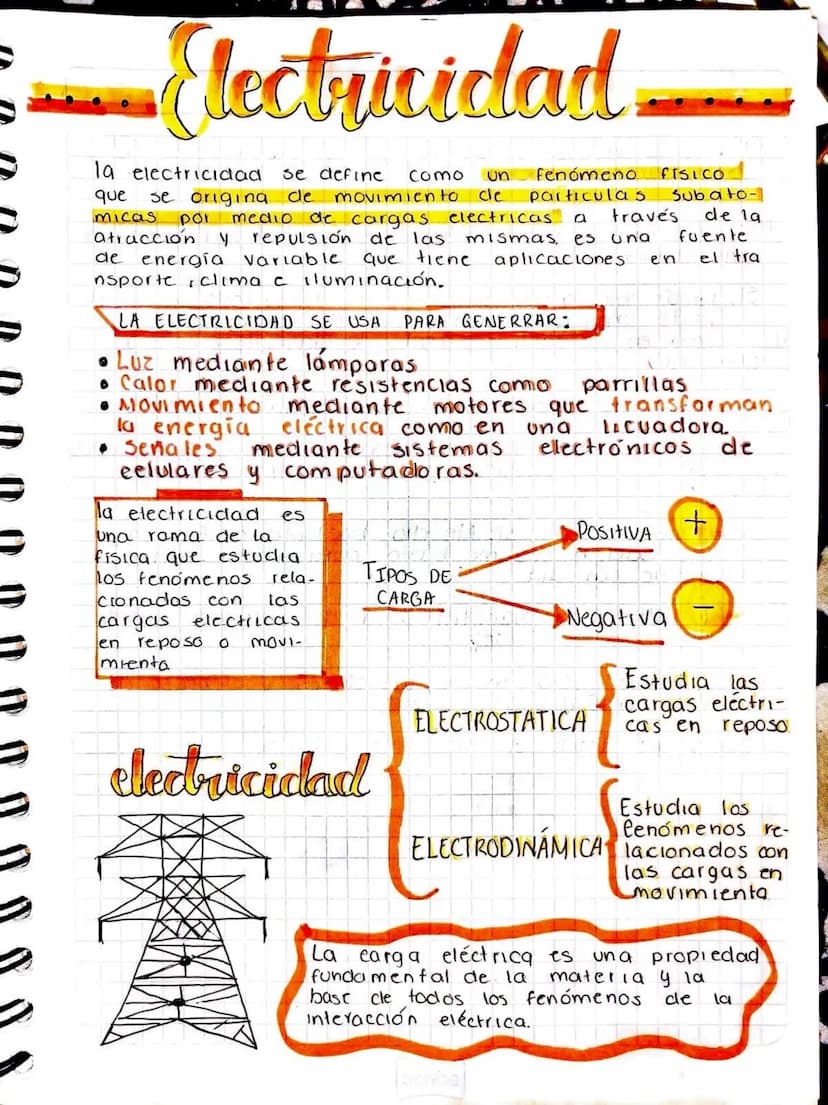 Electricidad
la electricidad se define como un fenómeno físico
que se origina de movimiento de partículas subato-
micas por medio de cargas electricas a través de la
atracción y repulsión de las mismas, es una fuente
de energía variable que tiene aplicaciones en el tra
nsporte, clima e iluminación.
LA ELECTRICIDAD SE USA PARA GENERRAR:
• Luz mediante lámparas
• Calor mediante resistencias como parrillas
• Movimiento mediante motores que transforman
la energía eléctrica como en una licuadora.
• Señales mediante sistemas electrónicos de
celulares y computadoras.
la electricidad es
una rama de la
física que estudia
los fenómenos rela-
cionados con las
cargas electricas
en reposo o movi-
mienta
TIPOS DE
CARGA
POSITIVA +
Negativa -
electricidad
ELECTROSTATICA
Estudia las
cargas eléctri-
cas en reposo
ELECTRODINÁMICA
Estudia los
fenómenos re-
lacionados con
las cargas en
movimiento
La carga eléctrica es una propiedad
fundamental de la materia y la
base de todos los fenómenos de la
interacción eléctrica.